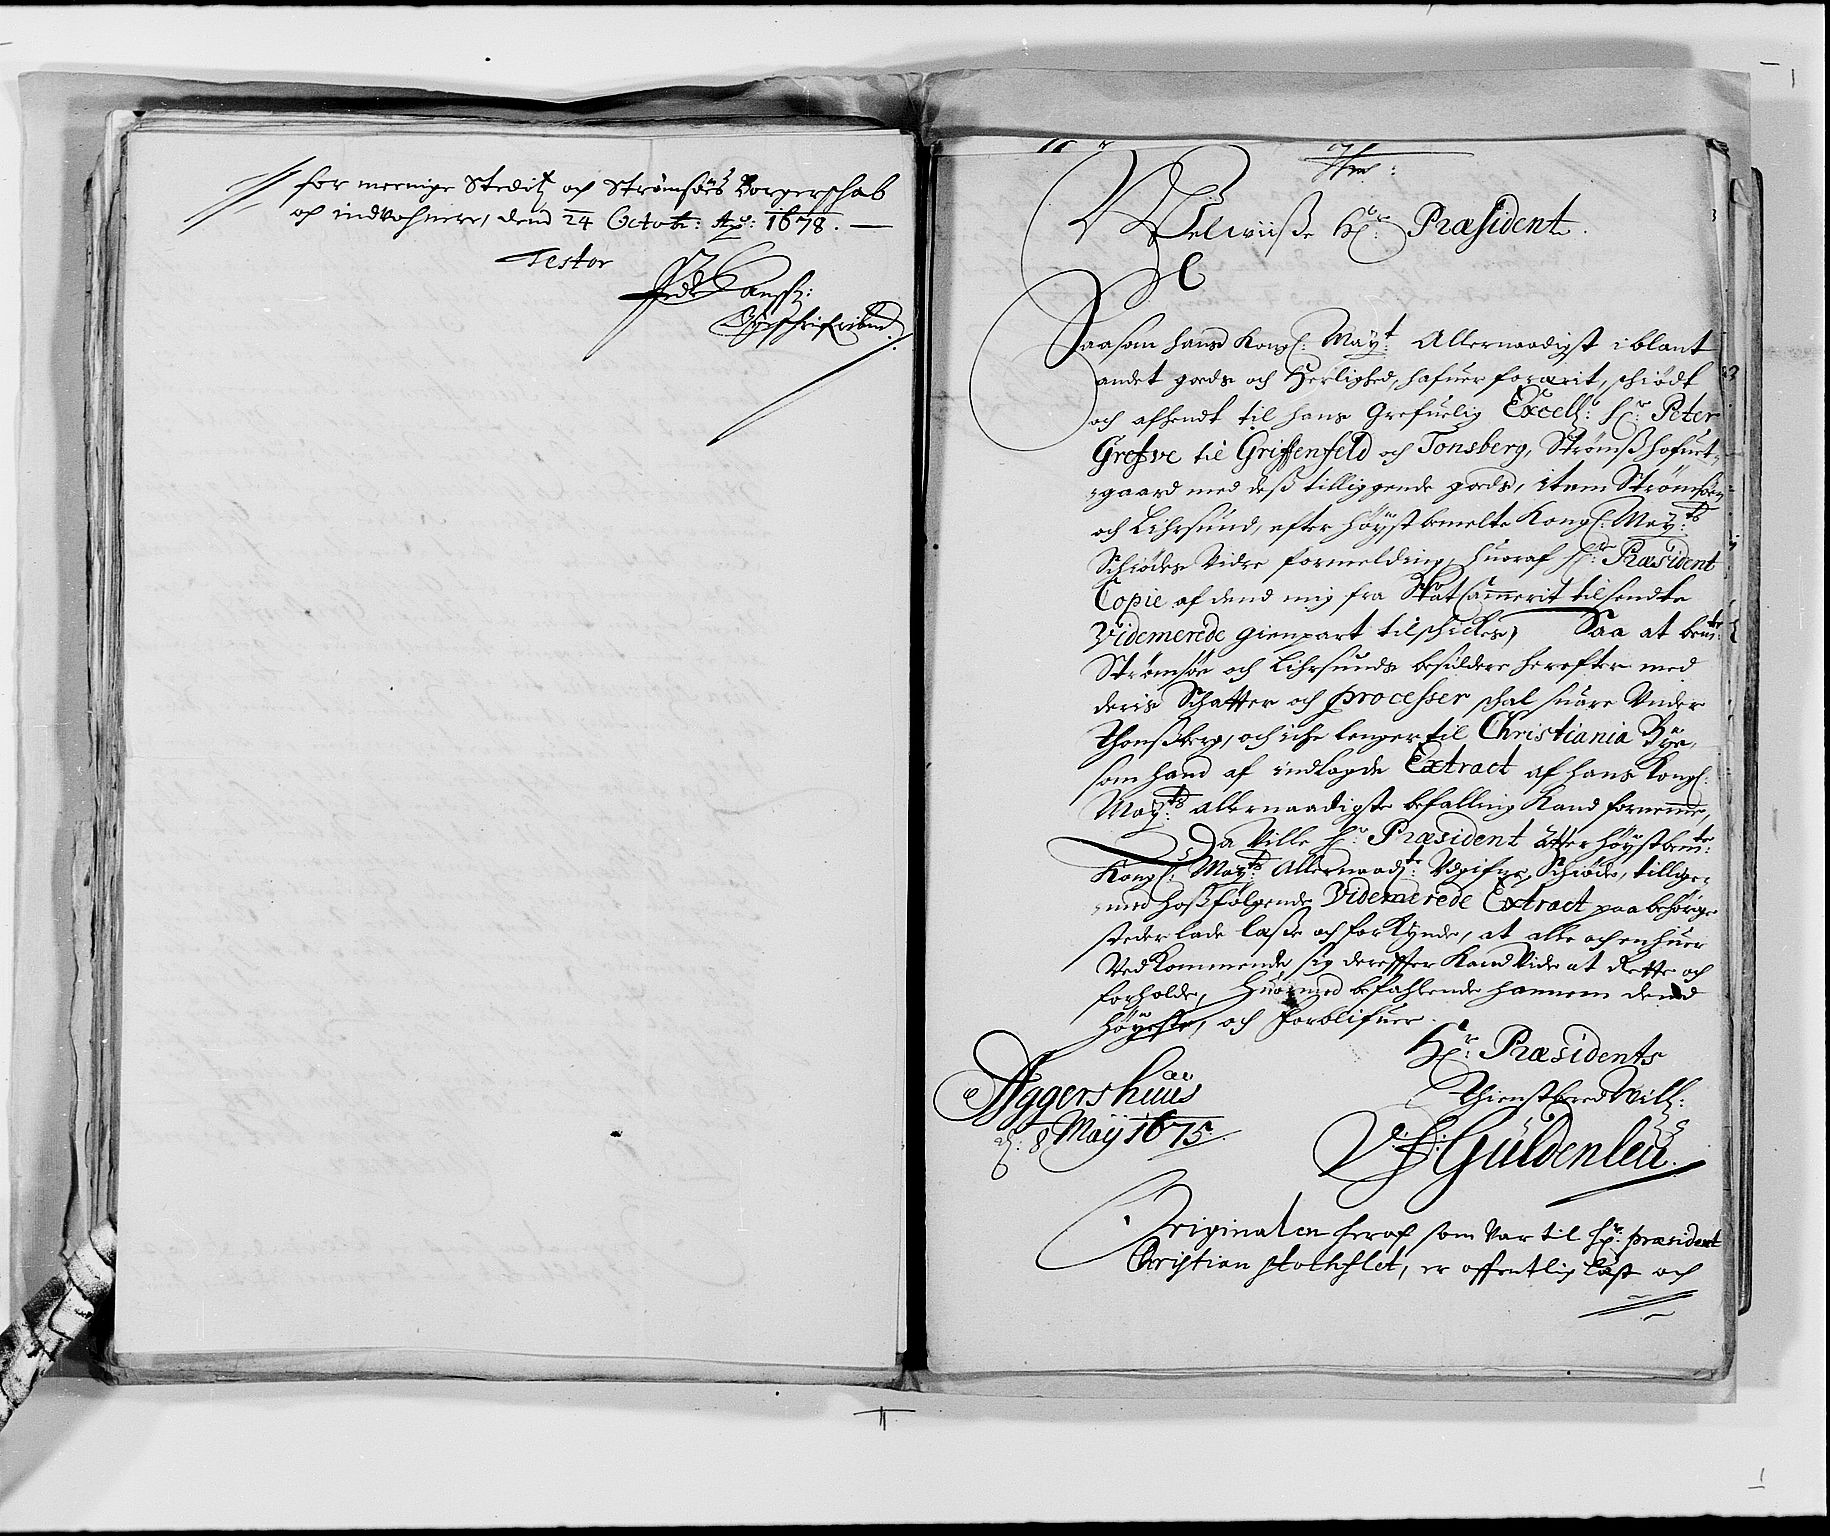 for meenige Steditz och Strømsøes Borgerschab
och indvohnere, dend 24 Octob: Ao: 1678. —
Testor
Hanss:
Byeschrifvibid.
Welwiisse Hr: Præsident.
Saasom hans Kongl: Mayt: Allernaadigst iblant
andet gods och Herlighed, hafuer forærit, schiödt
och afhendt til hans Grefuelig Excell: Hr: Peter
Grefve til Griffenfeld och Tonsberg, Strømsshofuet-
gaard med dess tilliggende gods, item Strømsøen
och Lihrsund, efter höystbemelte Kongl: Mayts:
Schiödes Vidre formelding, huoraf Hr: Præsident
Copie af dend mig fra StatCammerit tilsendte
Videmerede gienpart tilschickes, Saa at bemte:
Strømsøe och Lihrsunds besiddere herefter med
deris Schatter och processer schal suare Under
Thonssberg, och iche lenger til Christiania Bye,
som hand af indlagde Extract af hans Kongl:
Mayts: allernaadigste befalling Kand fornemme,
Da Ville Hr: Præsident efter höystbemte:
Kongl: Mayts: Allernaadte: Udgifne Schiöde, tillige-
med hossfölgende Videmerede Extract paa behörige
steder lade læsse och forKynde, at alle och enhuer
VedKommende sig derefter Kand Vide at Rette och
forholde, Huormed befahlende hannem dend
Höyeste, och forblifuer.
Hr: Præsidents
Thienstbered Will:
Aggershuus
d: 8 Maÿ 1675.
V: F: Güldenleü.
Originalen heraf som Var til Hr: præsident
Christian Stochflet, er offentlig læst och